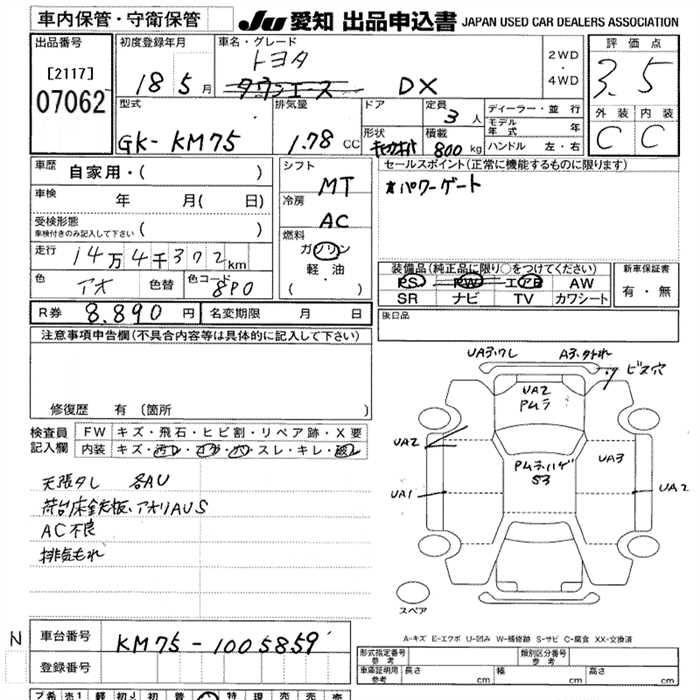 車内保管・守衛保管 JU 愛知 出品申込書 JAPAN USED CAR DEALERS ASSOCIATION
出品番号 [2117] 07062
初度登録年月 18 5月
車名・グレード トヨタ タウンエース DX
2WD・4WD
評価点 3.5
外装 内装 C C
型式 GK-KM75
排気量 1.78 CC
ドア
形状
定員 3人
積載 800 kg
ディーラー・並行
モデル年式 年
ハンドル 左・右
車歴 自家用・( )
車検 年 月( 日)
受検形態 車検付きのみ記入して下さい ( )
走行 14万4千372km
色 アオ 色替 色コード 8P0
シフト MT
冷房 AC
燃料 ガソリン 軽油 ( ・ )
セールスポイント(正常に機能するものに限ります)
*パワーゲート
装備品(純正品に限り○をつけてください)
PS PW エアB AW
SR ナビ TV カワシート
新車保証書 有・無
R券 8.890円 名変期限 月 日
後日品
注意事項申告欄(不具合内容等は具体的に記入して下さい)
修復歴 有(箇所 )
検査員記入欄
FW キズ・飛石・ヒビ割・リペア跡・X要
内装 キズ・汚レ・コゲ・穴・スレ・キレ・破レ
天張タレ 各AU
荷台床鉄板、アオリAUS
AC不良
排気もれ
UA3.ワレ A3.
ビス穴
UA2
PAムラ
UA2
UA3
S3
UA1
UA2
スペア
A-キズ E-エクボ U-凹み W-補修跡 S-サビ C-腐食 XX-交換済
N 車台番号 KM75-1005859
登録番号
形式指定番号 参考 類別区分番号 参考
車庫証明用 参考 長さ cm 幅 cm 高さ cm